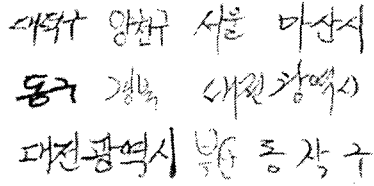 대덕구 양천구 서울 마산시
동구 경북 대전 광역시
대전광역시 부산 동작구